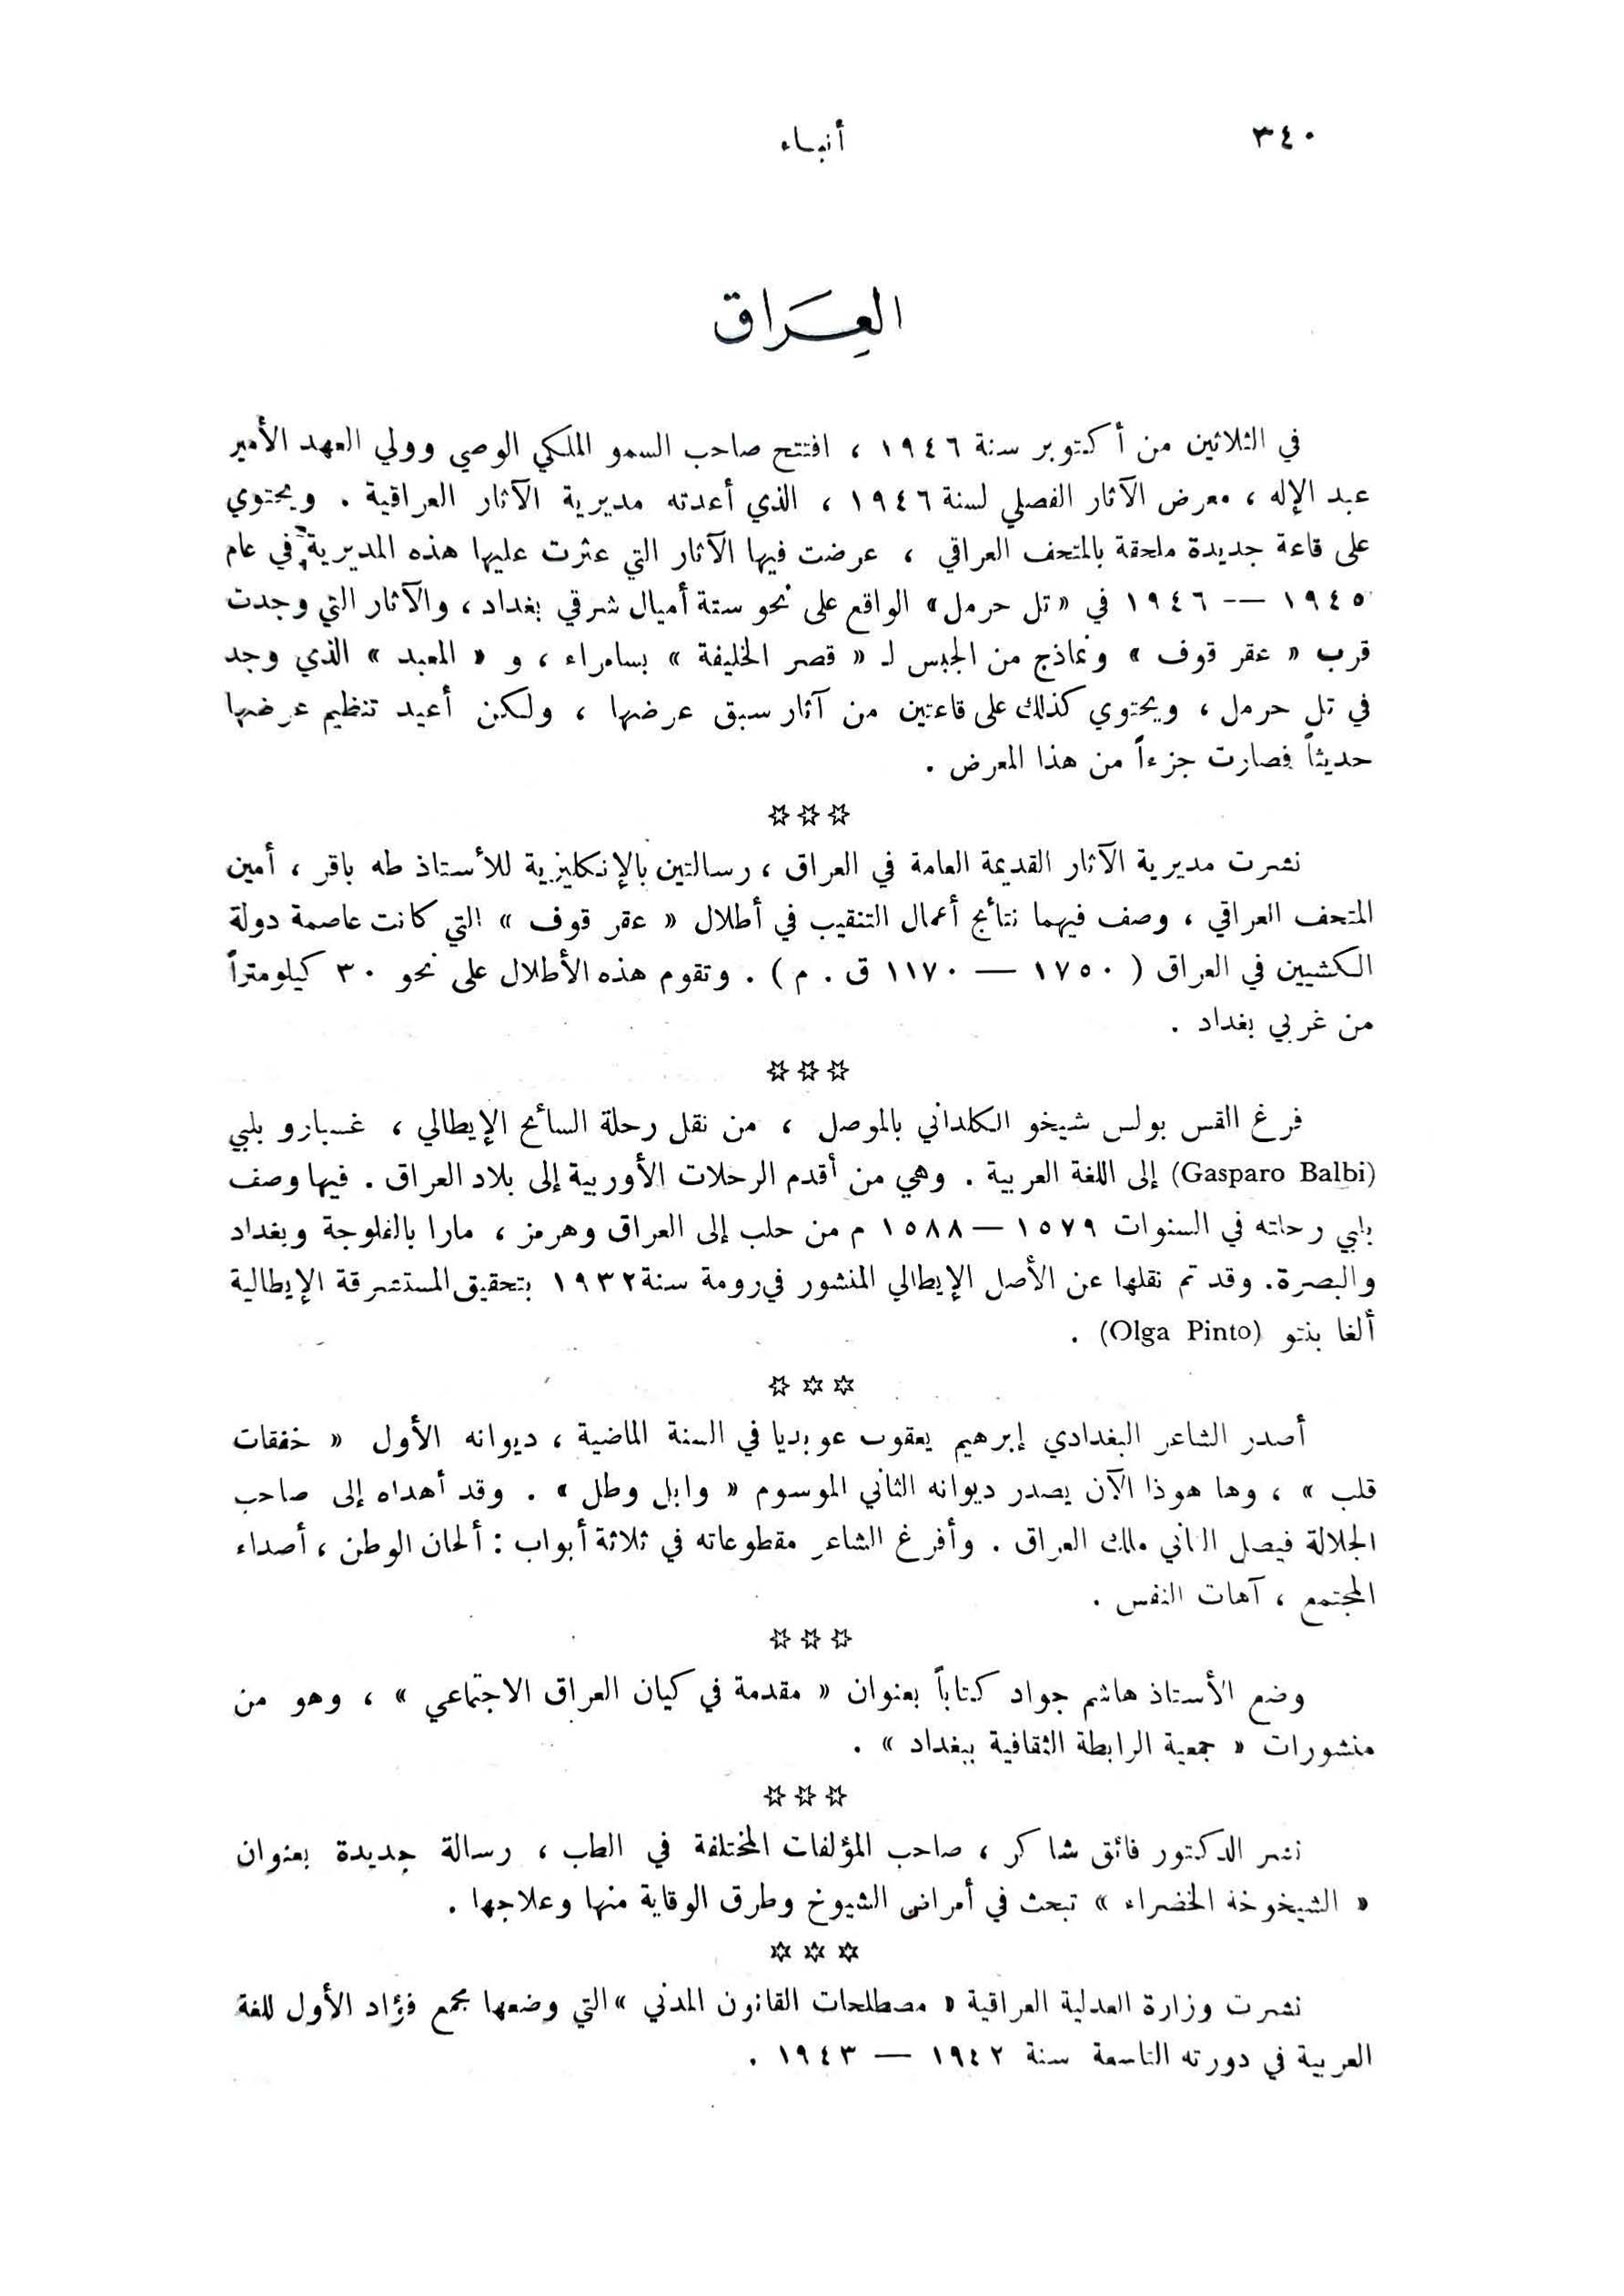 ٣٤٠
أنباء
العِرَاق
في الثلاثين من أكتوبر سنة ١٩٤٦ ، افتتح صاحب السمو الملكي الوصي وولي العهد الأمير
عبد الإله ، معرض الآثار الفصلي لسنة ١٩٤٦ ، الذي أعدته مديرية الآثار العراقية . ويحتوي
على قاعة جديدة ملحقة بالمتحف العراقي ، عرضت فيها الآثار التي عثرت عليها هذه المديرية في عام
١٩٤٥ — ١٩٤٦ في «تل حرمل» الواقع على نحو ستة أميال شرقي بغداد ، والآثار التي وجدت
قرب « عقر قوف » ونماذج من الجبس لـ « قصر الخليفة » بسامراء ، و « المعبد » الذي وجد
في تل حرمل ، ويحتوي كذلك على قاعتين من آثار سبق عرضها ، ولكن أعيد تنظيم عرضها
حديثاً فصارت جزءاً من هذا المعرض .
✡ ✡ ✡
نشرت مديرية الآثار القديمة العامة في العراق ، رسالتين بالإنكليزية للأستاذ طه باقر ، أمين
المتحف العراقي ، وصف فيهما نتائج أعمال التنقيب في أطلال « عقر قوف » التي كانت عاصمة دولة
الكشيين في العراق ( ١٧٥٠ — ١١٧٠ ق . م ) . وتقوم هذه الأطلال على نحو ٣٠ كيلومتراً
من غربي بغداد .
✡ ✡ ✡
فرغ القس بولس شيخو الكلداني بالموصل ، من نقل رحلة السائح الإيطالي ، غسبارو بلبي
(Gasparo Balbi) إلى اللغة العربية . وهي من أقدم الرحلات الأوربية إلى بلاد العراق . فيها وصف
بلبي رحلته في السنوات ١٥٧٩ — ١٥٨٨ م من حلب إلى العراق وهرمز ، مارا بالفلوجة وبغداد
والبصرة. وقد تم نقلها عن الأصل الإيطالي المنشور في رومة سنة ١٩٣٢ بتحقيق المستشرقة الإيطالية
ألغا بنتو (Olga Pinto) .
✡ ✡ ✡
أصدر الشاعر البغدادي إبرهيم يعقوب عوبديا في السنة الماضية ، ديوانه الأول « خفقات
قلب » ، وها هوذا الآن يصدر ديوانه الثاني الموسوم « وابل وطل » . وقد أهداه إلى صاحب
الجلالة فيصل الثاني ملك العراق . وأفرغ الشاعر مقطوعاته في ثلاثة أبواب : ألحان الوطن ، أصداء
المجتمع ، آهات النفس .
✡ ✡ ✡
وضع الأستاذ هاشم جواد كتاباً بعنوان « مقدمة في كيان العراق الاجتماعي » ، وهو من
منشورات « جمعية الرابطة الثقافية ببغداد » .
✡ ✡ ✡
نشر الدكتور فائق شاكر ، صاحب المؤلفات المختلفة في الطب ، رسالة جديدة بعنوان
« الشيخوخة الخضراء » تبحث في أمراض الشيوخ وطرق الوقاية منها وعلاجها .
✡ ✡ ✡
نشرت وزارة العدلية العراقية « مصطلحات القانون المدني » التي وضعها مجمع فؤاد الأول للغة
العربية في دورته التاسعة سنة ١٩٤٢ — ١٩٤٣ .